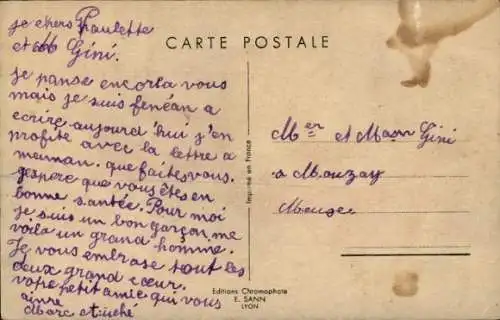 je chers Paulette
et M Gini.
je panse encorla vous
mais je suis fenéan a
ecrire aujourd'hui j'en
profite avec la lettre a
maman. que faites vous.
j'espere que vous êtes en
bonne santée. Pour moi
je suis un bon garçon me
voila un grand homme.
Je vous embrase tout les
deux grand cœur.
votre petit amie qui vous
aime
Marc
CARTE POSTALE
Mer et Mam Gini
a Mouzay
Meuse
Imprimé en France
Editions Chromophote
E. SANN
LYON